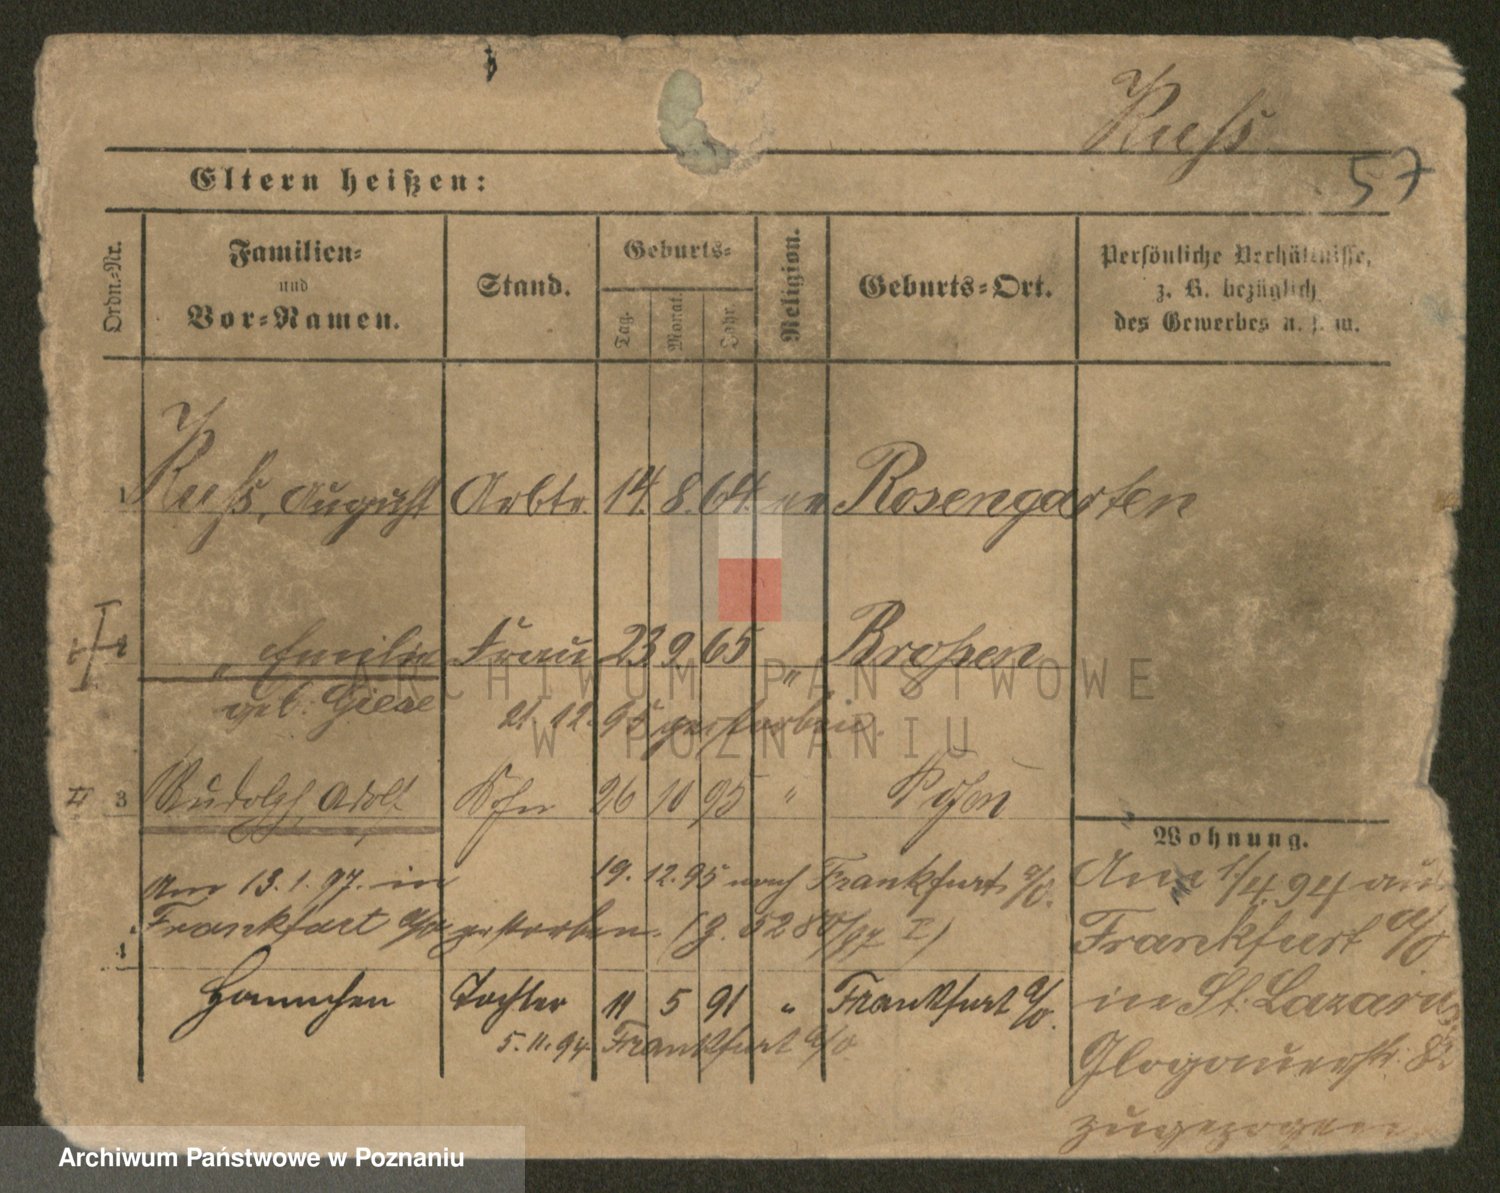 Russ
57
Eltern heißen:
Ordn.-Nr.
Familien-
und
Vor-Namen.
Stand.
Geburts-
Tag.
Monat.
Jahr
Religion.
Geburts-Ort.
Persönliche Verhältnisse,
z. B. bezüglich
des Gewerbes u. s. w.
1 Russ, August Arbtr. 14. 8. 64. ev Rosengarten
2 " Emilie Frau 23 9. 65 " Brossen
geb. Giese 21. 12. 95 gestorben.
II 3 Rudolph, Adolf Sohn 26 10 95 " Posen
Wohnung.
19. 12. 95 nach Frankfurt a/O.
Am 13. 1. 97. in
Frankfurt a/O gestorben. (g. 5280/97 I)
4 Hannchen Tochter 11 5 91 " Frankfurt a/O.
5. 11. 94. Frankfurt a/O
Am 1/4. 94 aus
Frankfurt a/O
in St. Lazarus
Glogauerstr. 8.
zugezogen.
ARCHIWUM PAŃSTWOWE
W POZNANIU
Archiwum Państwowe w Poznaniu